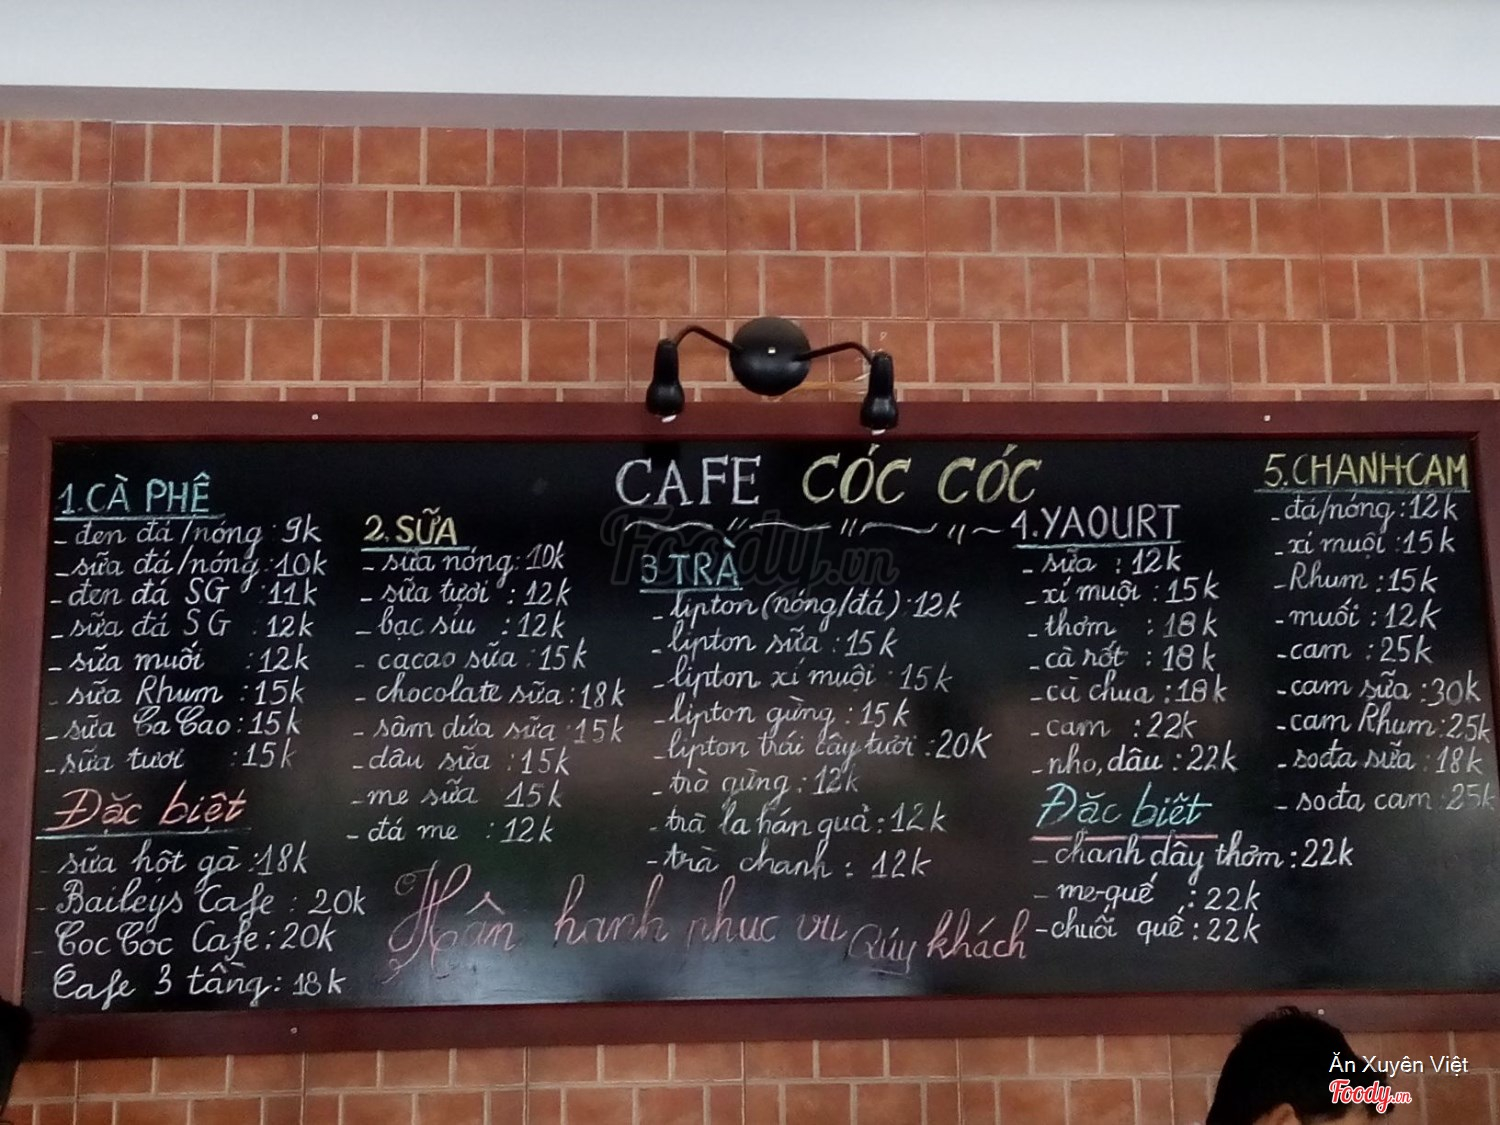 CAFE CÓC CÓC
1. CÀ PHÊ
- đen đá/nóng: 9k
- sữa đá/nóng: 10k
- đen đá SG : 11k
- sữa đá SG : 12k
- sữa muối : 12k
- sữa Rhum : 15k
- sữa Ca Cao: 15k
- sữa tươi : 15k
Đặc biệt
- sữa hột gà: 18k
- Baileys Cafe: 20k
- Coc Coc Cafe: 20k
Cafe 3 tầng: 18k
2. SỮA
- sữa nóng: 10k
- sữa tươi : 12k
- bạc sỉu : 12k
- cacao sữa : 15k
- chocolate sữa: 18k
- sâm dứa sữa : 15k
- dâu sữa : 15k
- me sữa 15k
- đá me : 12k
3 TRÀ
- lipton (nóng/đá): 12k
- lipton sữa : 15k
- lipton xí muội : 15k
- lipton gừng : 15k
- lipton trái cây tươi: 20k
- trà gừng : 12k
- trà la hán quả: 12k
- trà chanh : 12k
4. YAOURT
- sữa : 12k
- xí muội : 15k
- thơm : 18k
- cà rốt : 18k
- cà chua : 18k
- cam : 22k
- nho, dâu : 22k
Đặc biệt
- chanh dây thơm: 22k
- me-quế : 22k
- chuối quế : 22k
5. CHANH-CAM
- đá/nóng: 12k
- xí muội : 15k
- Rhum : 15k
- muối : 12k
- cam : 25k
- cam sữa : 30k
- cam Rhum: 25k
- soda sữa : 18k
- soda cam : 25k
Hân hanh phuc vu Qúy khách
Foody.vn
Ăn Xuyên Việt
Foody.vn